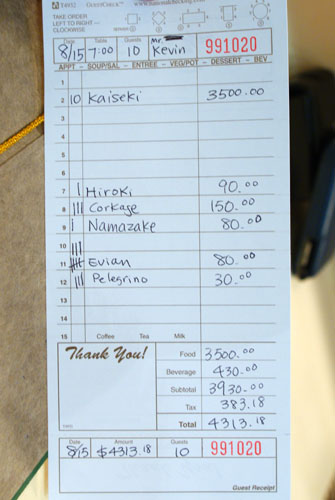 T4952 GUESTCHECK™
TAKE ORDER
LEFT TO RIGHT —
CLOCKWISE
Date Table Guests 991020
8/15 7:00 10 Mr. Kevin
APPT - SOUP/SAL - ENTREE - VEG/POT - DESSERT - BEV
1
2 10 Kaiseki 3500.00
7 I Hiroki 90.00
8 III Corkage 150.00
9 I Namazake 80.00
10 III
11 Evian 80.00
12 III Pelegrino 30.00
13
14
15 Coffee Tea Milk
Thank You!
Food 3500.00
Beverage 430.00
Subtotal 3930.00
Tax 383.18
Total 4313.18
Date Amount Guests
8/15 $4313.18 10 991020
Guest Receipt